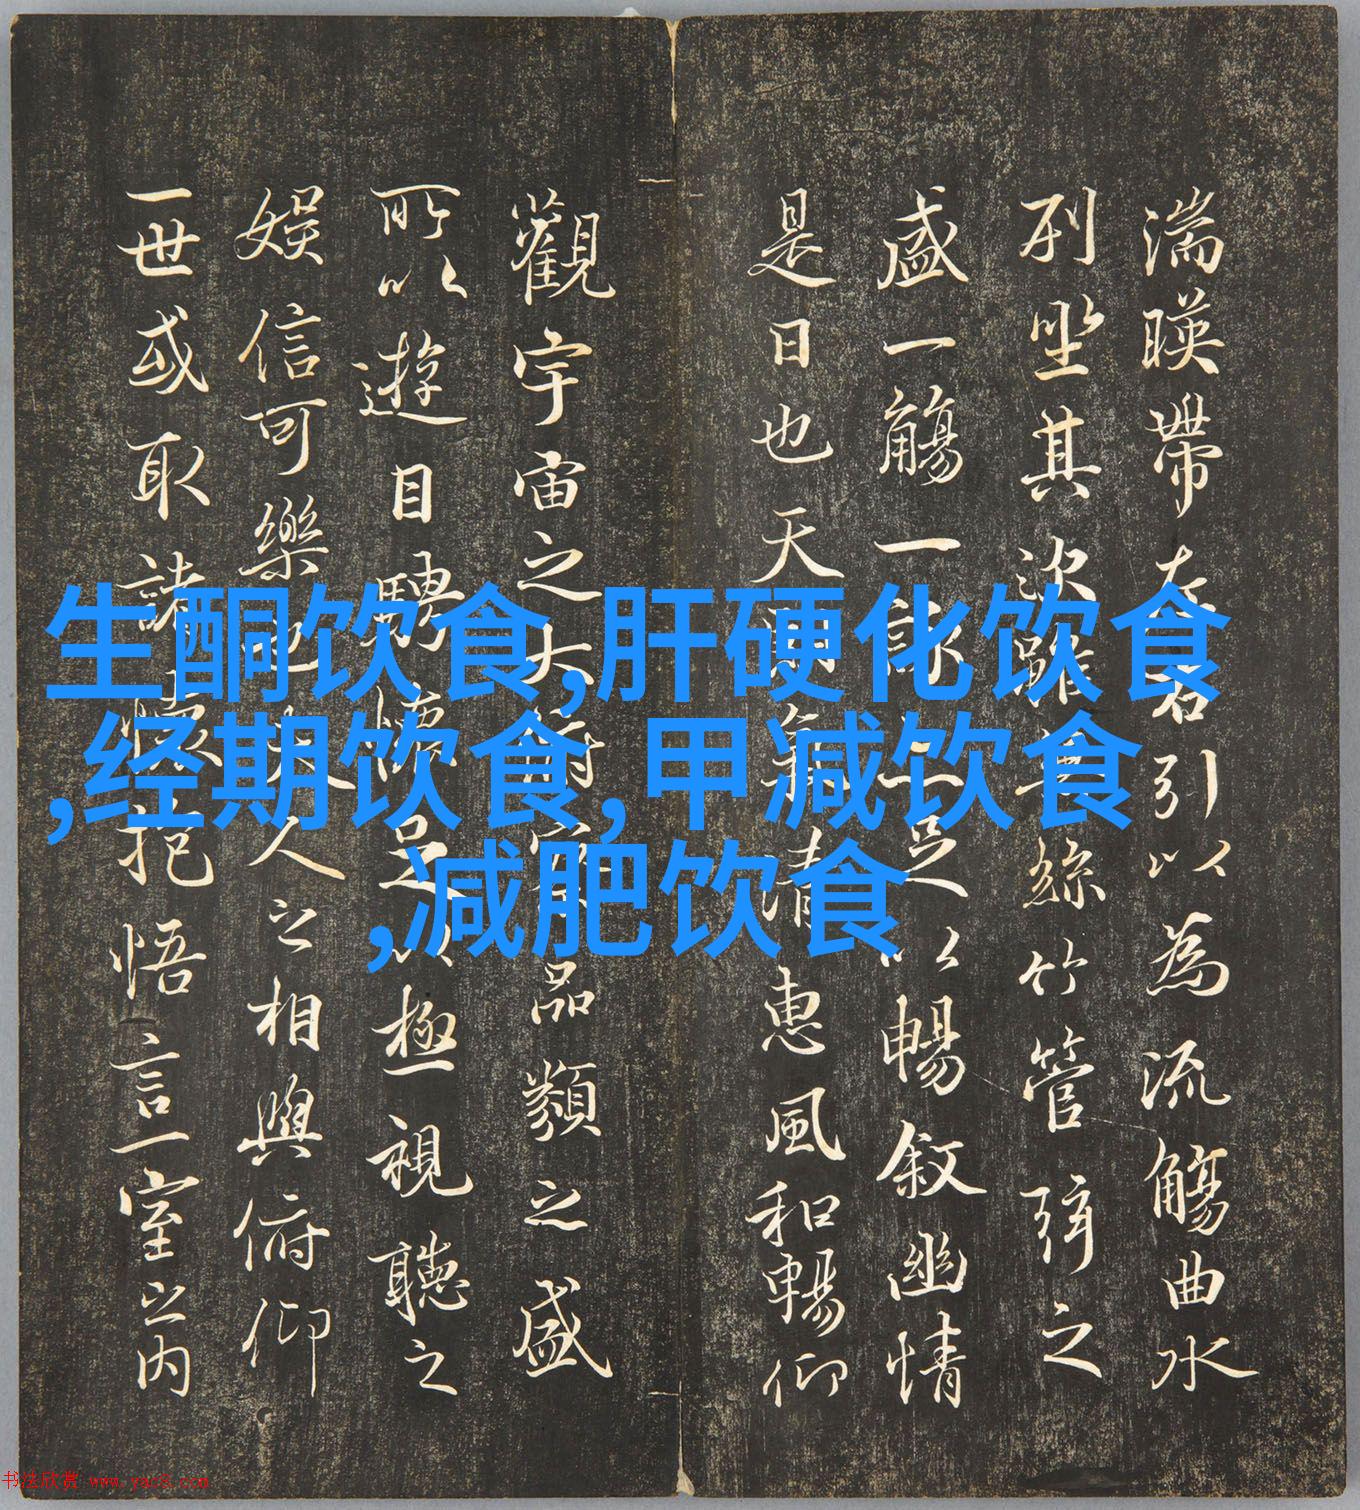 湍暎帶左右引以為流觴曲水
列坐其次雖絲竹管弦之
盛一觴一詠足以暢敘幽情
是日也天朗氣清惠風和暢仰
觀宇宙之大俯察品類之盛
所以遊目騁懷足以極視聽之
娛信可樂也夫人之相與俯仰
一世或取諸懷抱悟言一室之內
生酮饮食,肝硬化饮食
,经期饮食,甲减饮食
,减肥饮食
书法欣赏 www.yac8.com